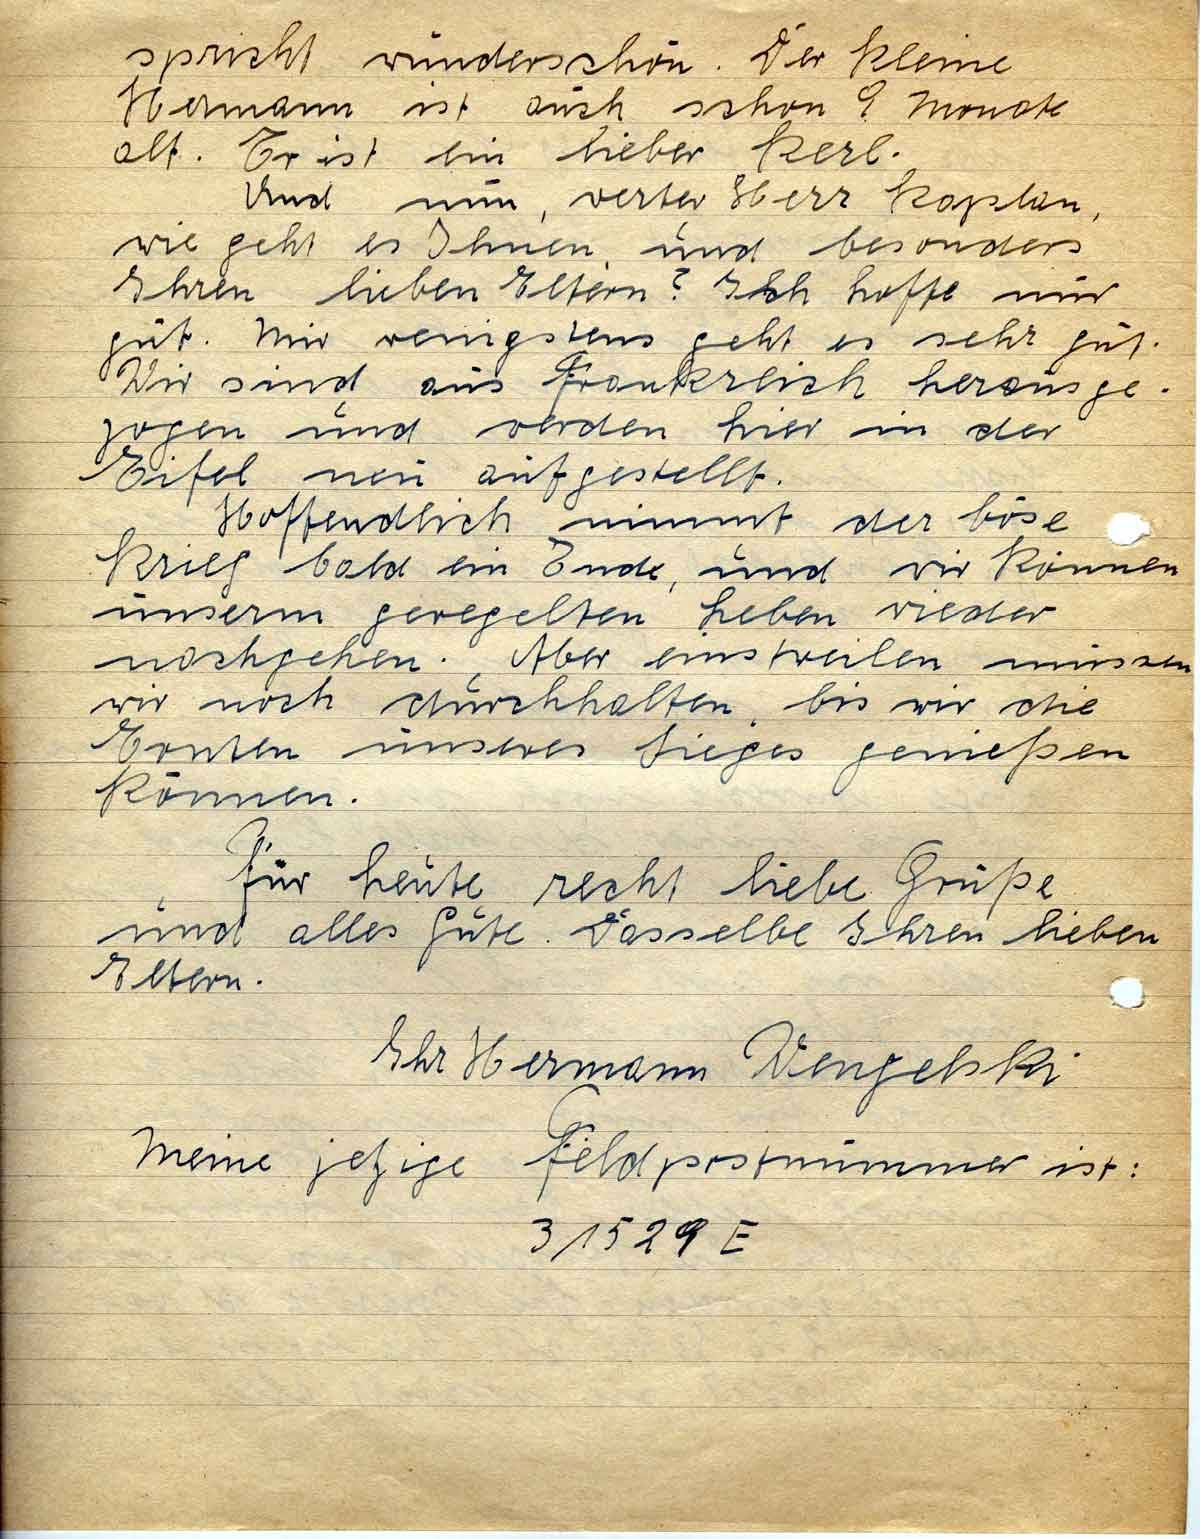 spricht wunderschön. Der kleine
Hermann ist auch schon 9 Monate
alt. Er ist ein lieber Kerl.
Und nun, werter Herr Kaplan,
wie geht es Ihnen, und besonders
Ihren lieben Eltern? Ich hoffe nur
gut. Mir wenigstens geht es sehr gut.
Wir sind aus Frankreich herausge-
zogen und werden hier in der
Eifel neu aufgestellt.
Hoffendlich nimmt der böse
Krieg bald ein Ende, und wir können
unserm geregelten Leben wieder
nachgehen. Aber einstweilen müssen
wir noch durchhalten, bis wir die
Ernten unseres Sieges genießen
können.
Für heute recht liebe Grüße
und alles Gute. Dasselbe Ihren lieben
Eltern.
Ihr Hermann Wengelski
Meine jetzige Feldpostnummer ist:
31529 E